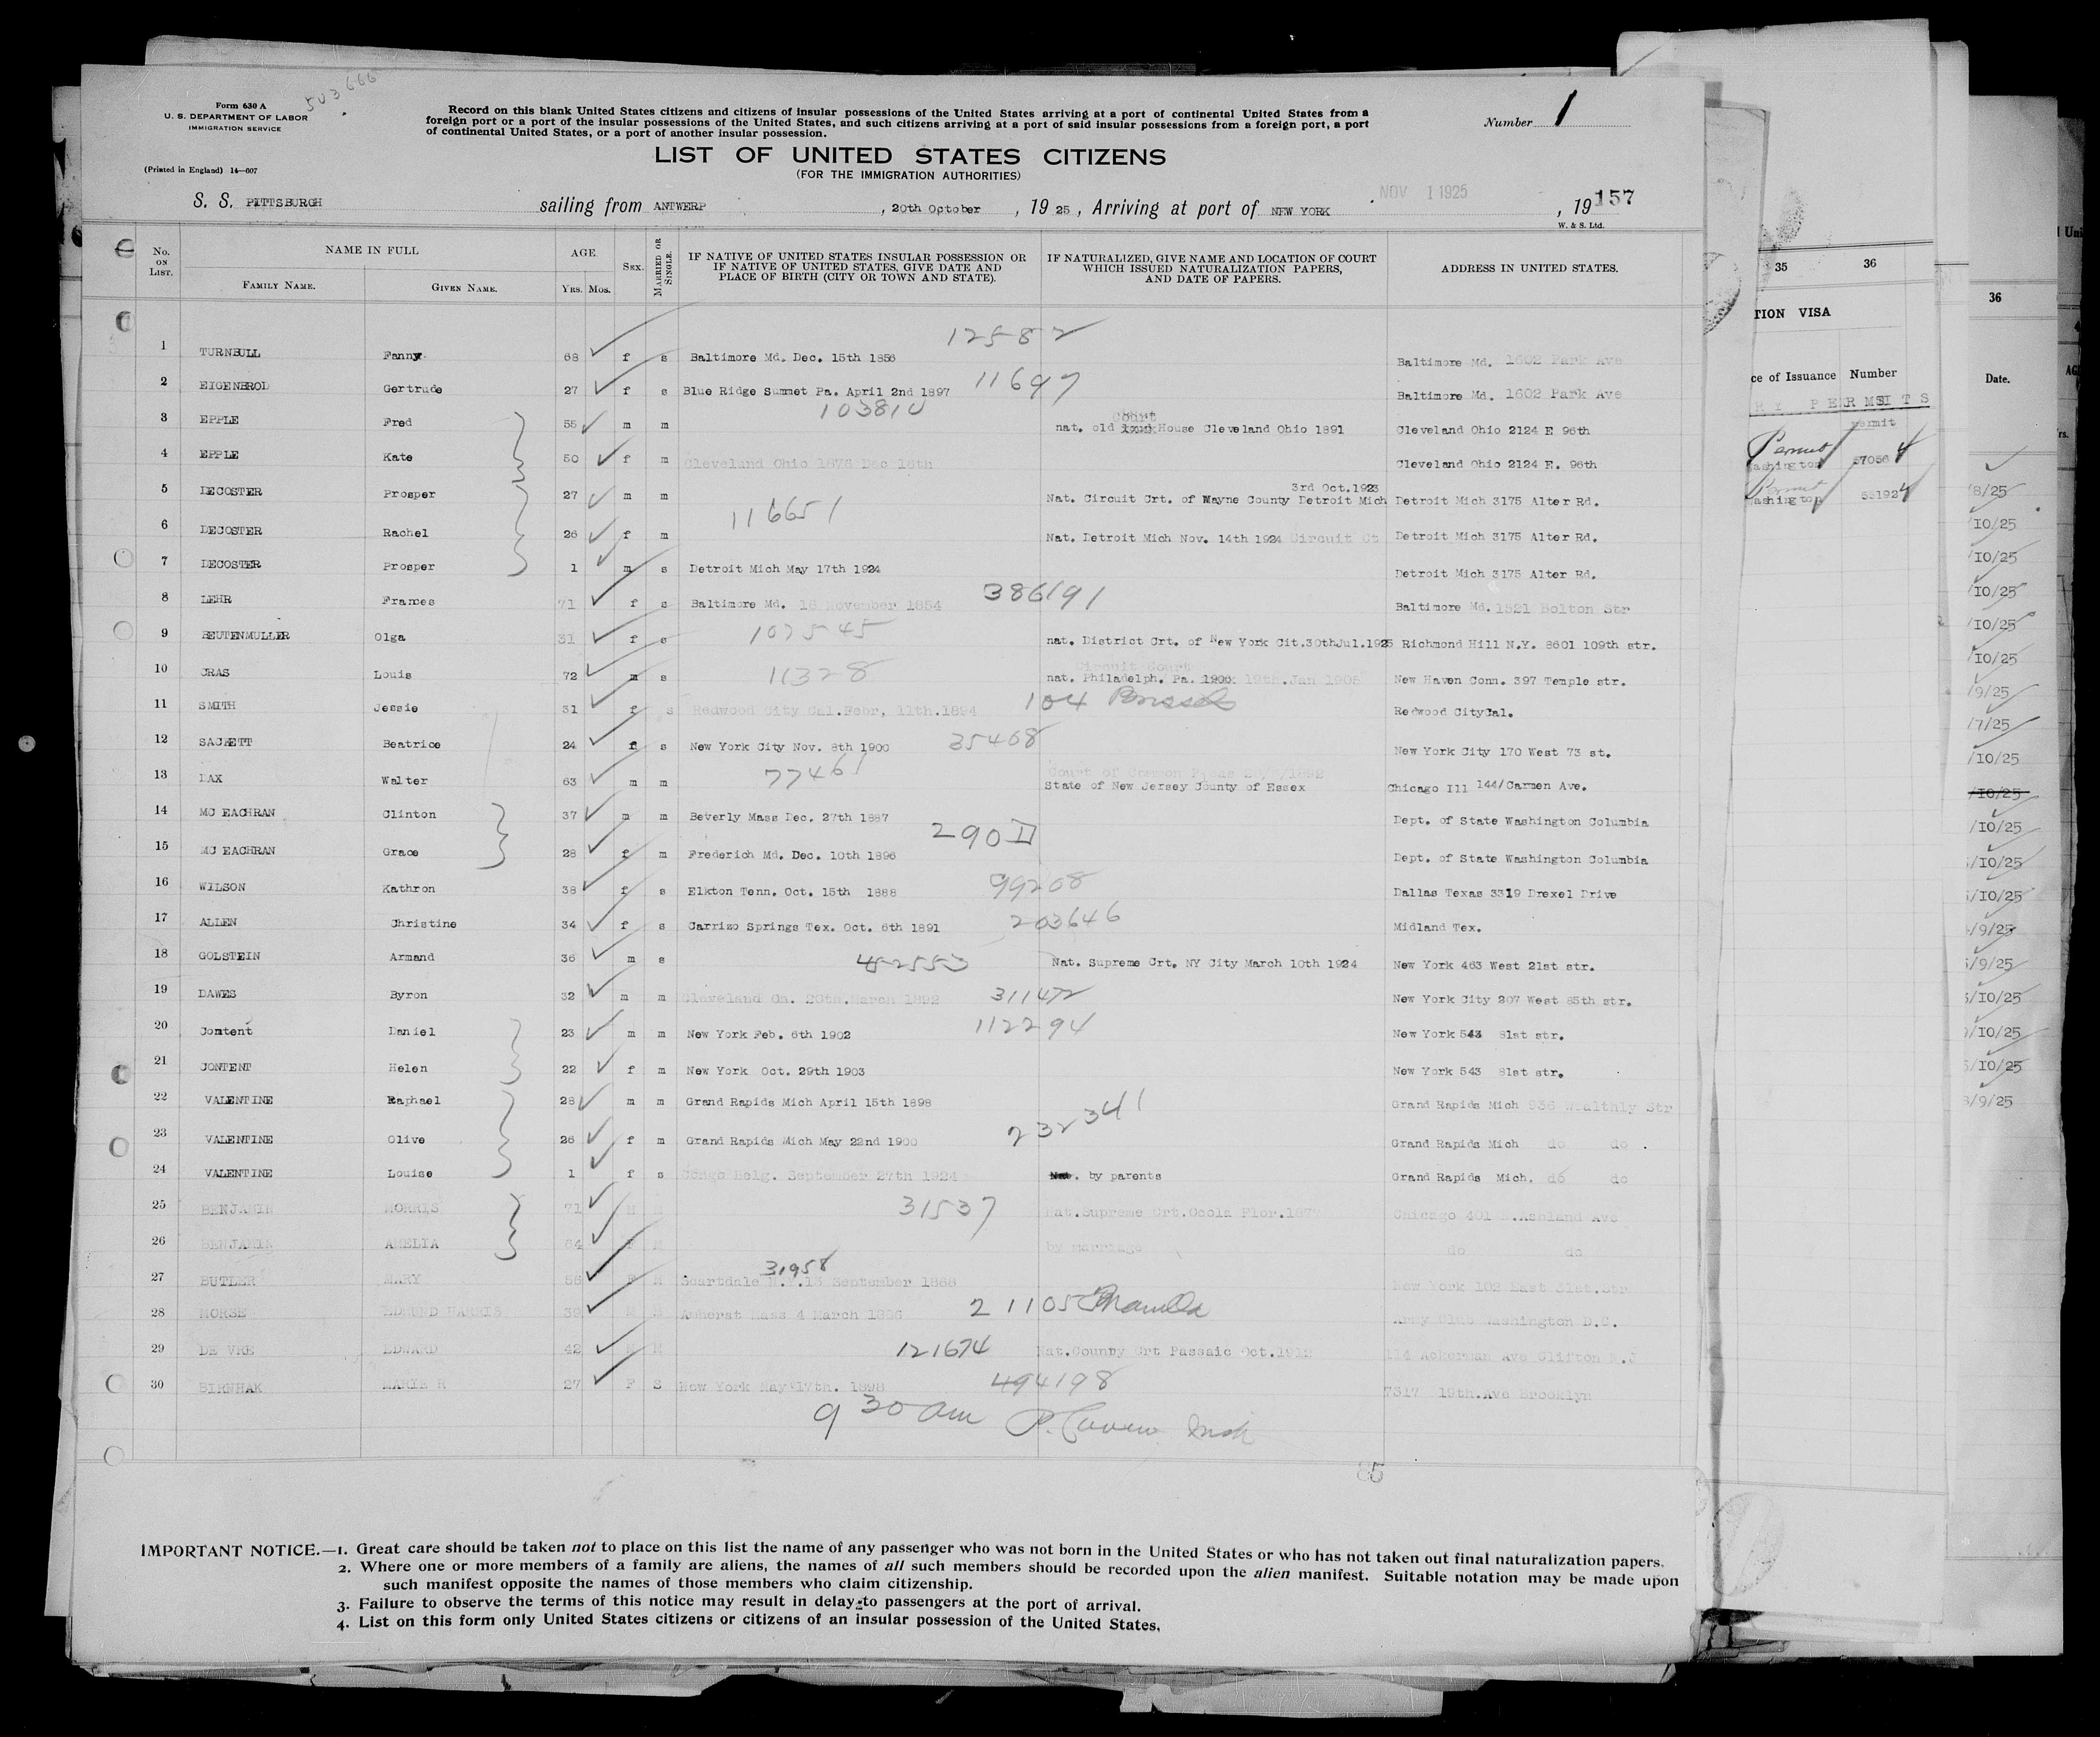 503666
Form 630 A
U. S. DEPARTMENT OF LABOR
IMMIGRATION SERVICE
(Printed in England) 14—607
Record on this blank United States citizens and citizens of insular possessions of the United States arriving at a port of continental United States from a
foreign port or a port of the insular possessions of the United States, and such citizens arriving at a port of said insular possessions from a foreign port, a port
of continental United States, or a port of another insular possession.
Number 1
LIST OF UNITED STATES CITIZENS
(FOR THE IMMIGRATION AUTHORITIES)
S. S. PITTSBURGH sailing from ANTWERP, 20th October, 19 25, Arriving at port of NEW YORK NOV 1 1925, 19 157
W. & S. Ltd.
No. ON LIST. NAME IN FULL AGE SEX. MARRIED OR SINGLE. IF NATIVE OF UNITED STATES INSULAR POSSESSION OR IF NATIVE OF UNITED STATES, GIVE DATE AND PLACE OF BIRTH (CITY OR TOWN AND STATE). IF NATURALIZED, GIVE NAME AND LOCATION OF COURT WHICH ISSUED NATURALIZATION PAPERS, AND DATE OF PAPERS. ADDRESS IN UNITED STATES.
FAMILY NAME. GIVEN NAME. YRS. MOS.
12582
1 TURNBULL Fanny 68 f s Baltimore Md. Dec. 15th 1856 Baltimore Md. 1602 Park Ave
2 EIGENBROD Gertrude 27 f s Blue Ridge Summet Pa. April 2nd 1897 11697 Baltimore Md. 1602 Park Ave
103810
3 EPPLE Fred 55 m m nat. old Court House Cleveland Ohio 1891 Cleveland Ohio 2124 E 96th
4 EPPLE Kate 50 f m Cleveland Ohio 1875 Dec 16th Cleveland Ohio 2124 E. 96th
5 DECOSTER Prosper 27 m m Nat. Circuit Crt. of Wayne County Detroit Mich 3rd Oct.1923 Detroit Mich 3175 Alter Rd.
116651
6 DECOSTER Rachel 26 f m Nat. Detroit Mich Nov. 14th 1924 Circuit Ct Detroit Mich 3175 Alter Rd.
7 DECOSTER Prosper 1 m s Detroit Mich May 17th 1924 Detroit Mich 3175 Alter Rd.
8 LEHR Frances 71 f s Baltimore Md. 18 November 1854 386191 Baltimore Md. 1521 Bolton Str
9 BEUTENMULLER Olga 31 f s 107545 nat. District Crt. of New York Cit.30thJul.1925 Richmond Hill N.Y. 8601 109th str.
10 CRAS Louis 72 m s 11328 Circuit Court nat. Philadelph. Pa. 19th.Jan 1905 New Haven Conn. 397 Temple str.
11 SMITH Jessie 31 f s Redwood City Cal.Febr, 11th.1894 104 Brussels Redwood CityCal.
12 SACKETT Beatrice 24 f s New York City Nov. 8th 1900 35408 New York City 170 West 73 st.
13 DAX Walter 63 m m 77461 Court of Common Pleas State of New Jersey County of Essex Chicago Ill 144/Carmen Ave.
14 MC EACHRAN Clinton 37 m m Beverly Mass Dec. 27th 1887 Dept. of State Washington Columbia
290 II
15 MC EACHRAN Grace 28 f m Frederich Md. Dec. 10th 1896 Dept. of State Washington Columbia
16 WILSON Kathron 38 f s Elkton Tenn. Oct. 15th 1888 99208 Dallas Texas 3319 Drexel Drive
17 ALLEN Christine 34 f s Carrizo Springs Tex. Oct. 6th 1891 203646 Midland Tex.
18 GOLSTEIN Armand 36 m s 452553 Nat. Supreme Crt. NY City March 10th 1924 New York 463 West 21st str.
19 DAWES Byron 32 m m Cleveland Ga. 20th.March 1892 311472 New York City 207 West 85th str.
20 Content Daniel 23 m m New York Feb. 6th 1902 112294 New York 543 81st str.
21 CONTENT Helen 22 f m New York Oct. 29th 1903 New York 543 81st str.
22 VALENTINE Raphael 28 m m Grand Rapids Mich April 15th 1898 Grand Rapids Mich 936 Wealthly Str
232341
23 VALENTINE Olive 26 f m Grand Rapids Mich May 22nd 1900 Grand Rapids Mich do do
24 VALENTINE Louise 1 f s Congo Belg. September 27th 1924 by parents Grand Rapids Mich. do do
25 BENJAMIN MORRIS 71 M M 31537 Nat.Supreme Crt.Ocola Flor. Chicago 401 Ashland Ave
26 BENJAMIN AMELIA 64 F M by marriage do do
31958
27 BUTLER MARY F M Scartdale N.Y.13 September 1868 New York 102 East 31st.Str
28 MORSE EDMUND HARRIS 39 M Amherst Mass 4 March 1886 21105 Manilla Army Club Washington D.C.
29 DE VRE EDWARD 42 M M 121674 Nat.County Crt Passaic Oct.1912 114 Ackerman Ave Clifton N.J
30 BIRNHAK MARIE R 27 F S New York May 17th. 1898 494198 7317 19th.Ave Brooklyn
9 30 am
85
IMPORTANT NOTICE.—1. Great care should be taken not to place on this list the name of any passenger who was not born in the United States or who has not taken out final naturalization papers.
2. Where one or more members of a family are aliens, the names of all such members should be recorded upon the alien manifest. Suitable notation may be made upon
such manifest opposite the names of those members who claim citizenship.
3. Failure to observe the terms of this notice may result in delay to passengers at the port of arrival.
4. List on this form only United States citizens or citizens of an insular possession of the United States.
35 36
TION VISA
ce of Issuance Number
RY PERMITS
permit
Permit
ashington 57056
Permit
ashington 55192
36
Date.
8/25
10/25
10/25
10/25
10/25
10/25
9/25
7/25
10/25
10/25
10/25
/10/25
/10/25
/9/25
/9/25
/10/25
/10/25
/10/25
8/9/25